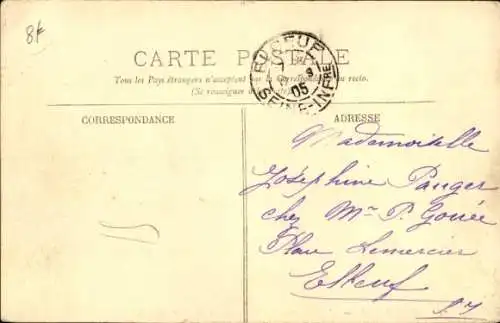 8f
CARTE POSTALE
Tous les Pays étrangers n'acceptent pas la Correspondance au recto.
(Se renseigner à la Poste)
ELBEUF
05
SEINE-INFRE
CORRESPONDANCE
ADRESSE
Mademoiselle
Joséphine Pauger
chez Mr P. Gouée
Place Lemercier
Elbeuf
S. I.